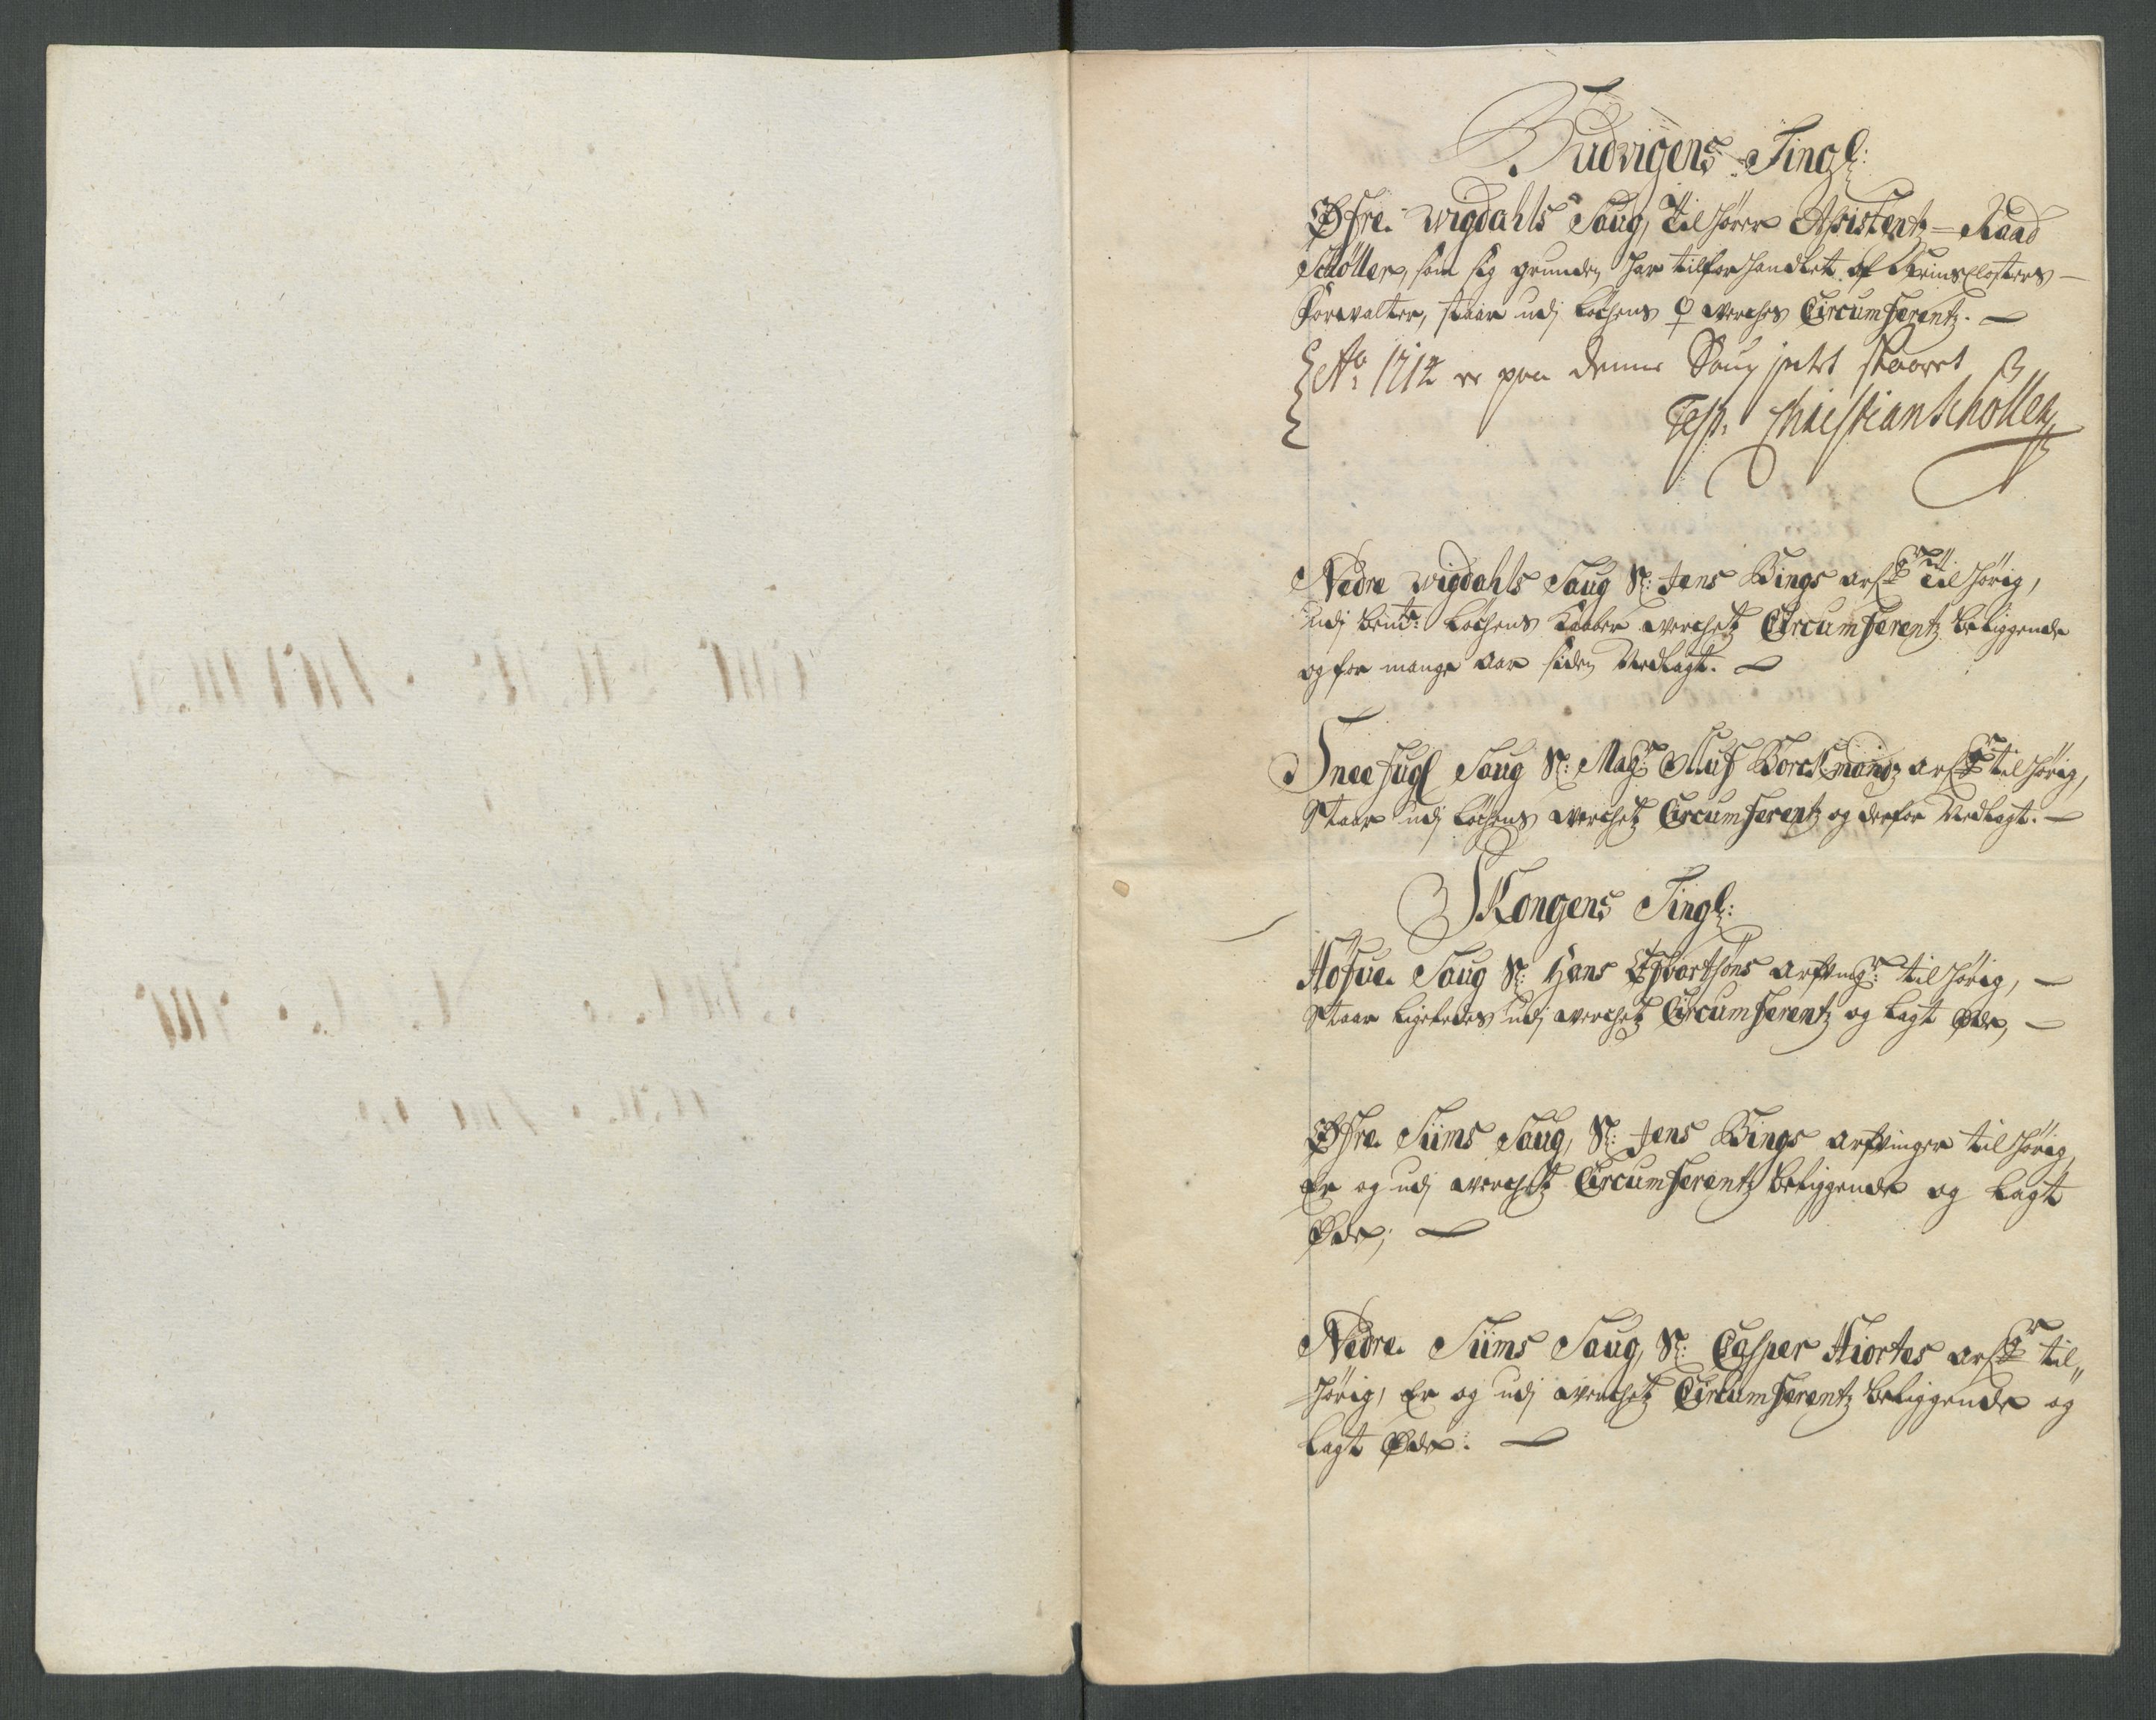 Budvigens Tingl:
Øfre Wigdahls Saug, Tilhører Assistentz-Raad
Schøller, som sig grunden har tilforhandlet af Reinsclosters
Forvalter, staar udj Løchens ♀ Werches Circumferentz.
Ao 1712 er paa denne Saug intet skaaret
Test. Christian Schøller
Nedre Wigdahls Saug Sl: Jens Bings arfr tilhørig,
udj bemte: Løchens Kaaber Werchetz Circumferentz beliggende
og for mange aar siden Nedlagt.
Sneefugl Saug Sl: Magr Oluf Borchmandz arfr tilhørig,
Staar udj Løchens Werchetz Circumferentz og derfor Nedlagt.
Skongens Tingl:
Høfue Saug Sl: Hans Efvertsøns arfvingr: tilhørig,
Staar ligeledes udj Werchetz Circumferentz og lagt Øde,
Øfre Siims Saug, Sl: Jens Bings arfvinger tilhørig
Er og udj Werchetz Circumferentz beliggende og lagt
Øde;
Nedre Siims Saug, Sl: Casper Hiortes arfr til-
hørig, Er og udj Werchetz Circumferentz beliggende og
lagt Øde: